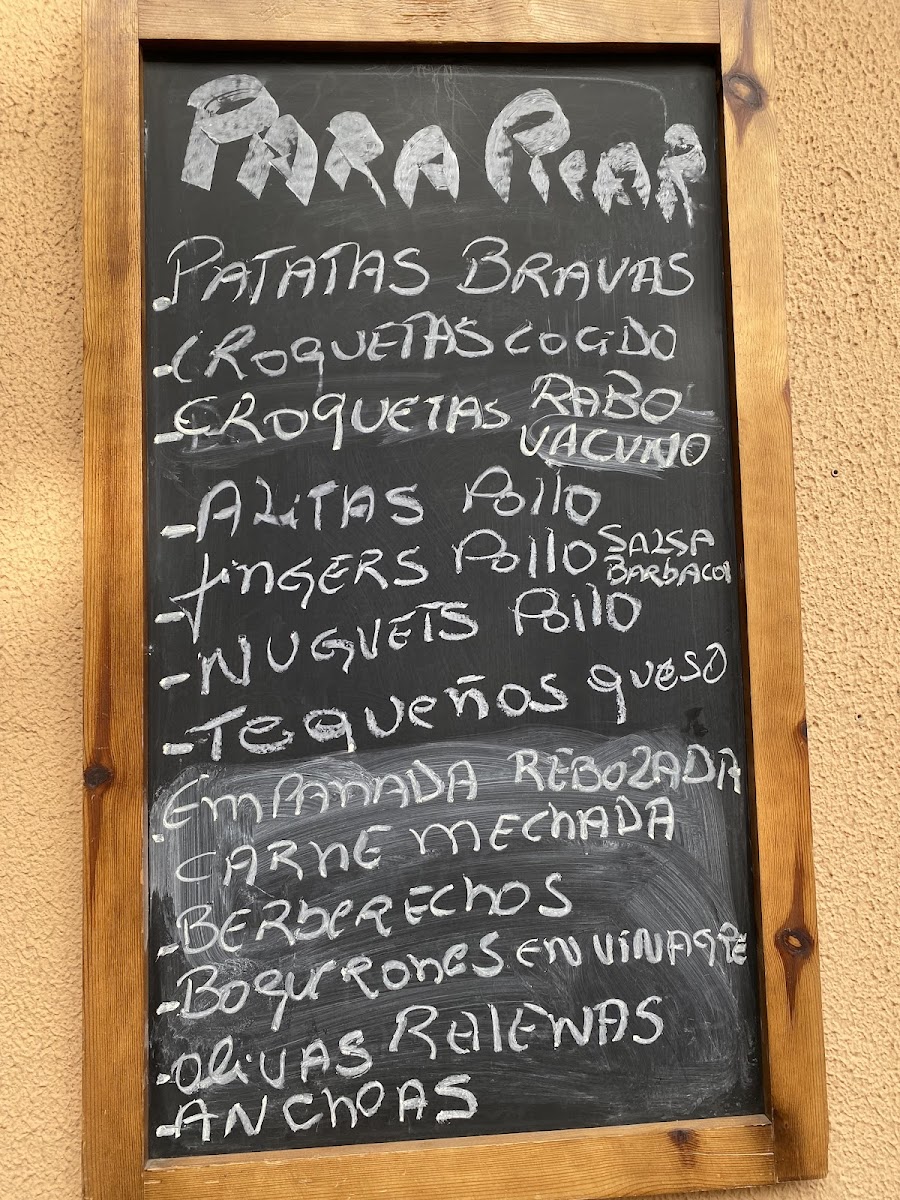 PARA PICAR
.PATATAS BRAVAS
-CROQUETAS COCIDO
-CROQUETAS RABO
VACUNO
-ALITAS Pollo
-fiNGERS Pollo SALSA
BARBACOA
-NUGUETS Pollo
-TEQUEÑOS QUESO
.EMPANADA REBOZADA
CARNE MECHADA
-BERBERECHOS
-BOQUERONES EN VINAGRE
-OliVAS RELLENAS
-ANCHOAS